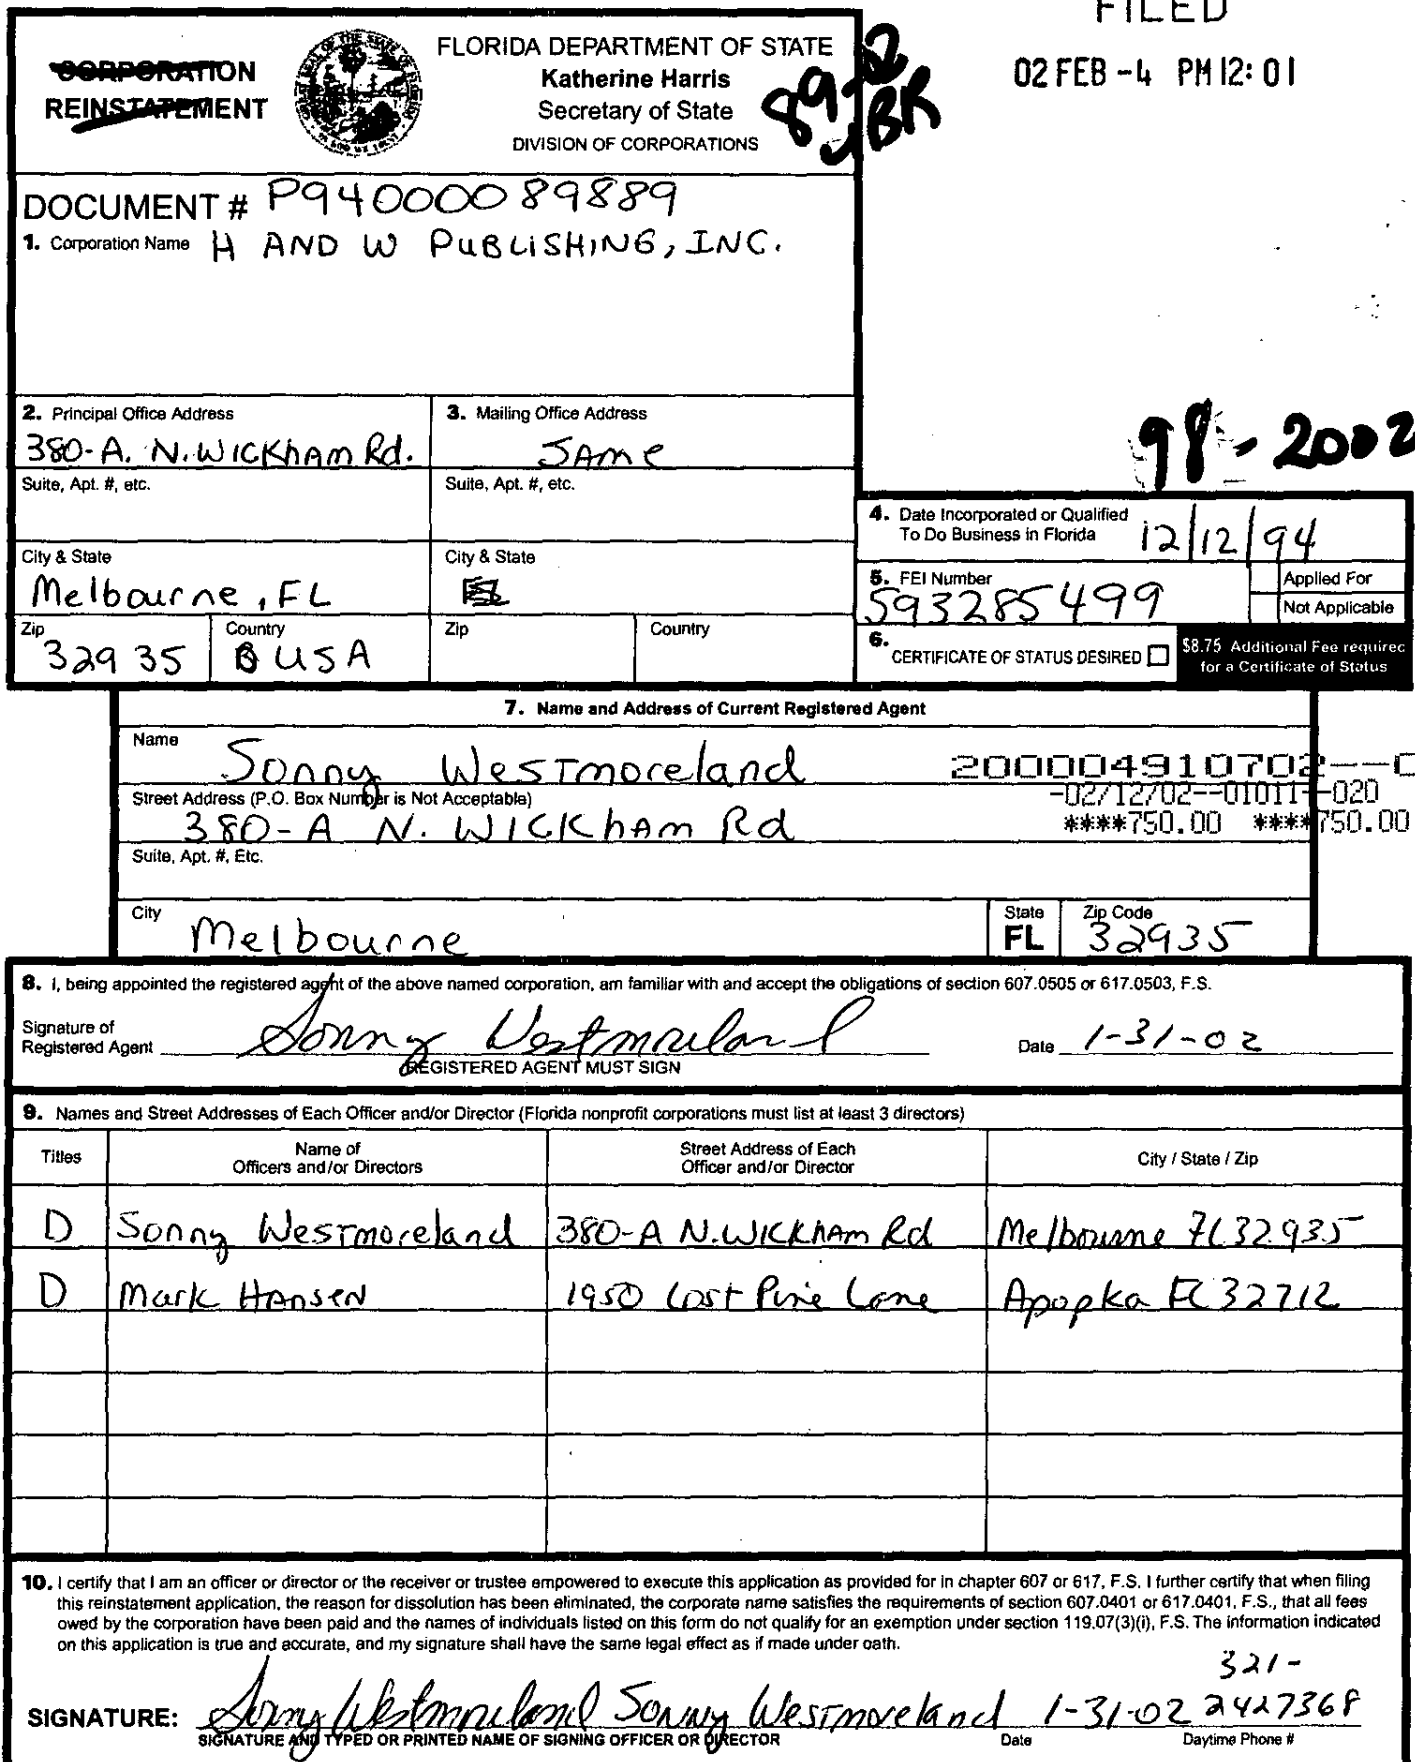 FILED
02 FEB -4 PM 12: 01
CORPORATION
REINSTATEMENT
FLORIDA DEPARTMENT OF STATE
Katherine Harris
Secretary of State
DIVISION OF CORPORATIONS
DOCUMENT # P94000089889
1. Corporation Name H AND W PUBLISHING, INC.
98-2002
2. Principal Office Address
380-A. N. WICKHAM Rd.
3. Mailing Office Address
SAME
Suite, Apt. #, etc.
Suite, Apt. #, etc.
City & State
Melbourne, FL
City & State
Zip 32935
Country USA
Zip
Country
4. Date Incorporated or Qualified
To Do Business in Florida 12/12/94
5. FEI Number
593285499
Applied For
Not Applicable
6. CERTIFICATE OF STATUS DESIRED
$8.75 Additional Fee required
for a Certificate of Status
7. Name and Address of Current Registered Agent
Name Sonny Westmoreland
200004910702--0
-02/12/02--01011--020
****750.00 ****750.00
Street Address (P.O. Box Number is Not Acceptable)
380-A N. WICKHAM Rd
Suite, Apt. #, Etc.
City Melbourne
State FL
Zip Code 32935
8. I, being appointed the registered agent of the above named corporation, am familiar with and accept the obligations of section 607.0505 or 617.0503, F.S.
Signature of
Registered Agent Sonny Westmoreland Date 1-31-02
REGISTERED AGENT MUST SIGN
9. Names and Street Addresses of Each Officer and/or Director (Florida nonprofit corporations must list at least 3 directors)
Titles
Name of
Officers and/or Directors
Street Address of Each
Officer and/or Director
City / State / Zip
D Sonny Westmoreland 380-A N. WICKHAM Rd Melbourne FL 32935
D Mark Hansen 1950 Lost Pine Lane Apopka FL 32712
10. I certify that I am an officer or director or the receiver or trustee empowered to execute this application as provided for in chapter 607 or 617, F.S. I further certify that when filing
this reinstatement application, the reason for dissolution has been eliminated, the corporate name satisfies the requirements of section 607.0401 or 617.0401, F.S., that all fees
owed by the corporation have been paid and the names of individuals listed on this form do not qualify for an exemption under section 119.07(3)(i), F.S. The information indicated
on this application is true and accurate, and my signature shall have the same legal effect as if made under oath.
321-
SIGNATURE: Sonny Westmoreland Sonny Westmoreland 1-31-02 2427368
SIGNATURE AND TYPED OR PRINTED NAME OF SIGNING OFFICER OR DIRECTOR Date Daytime Phone #